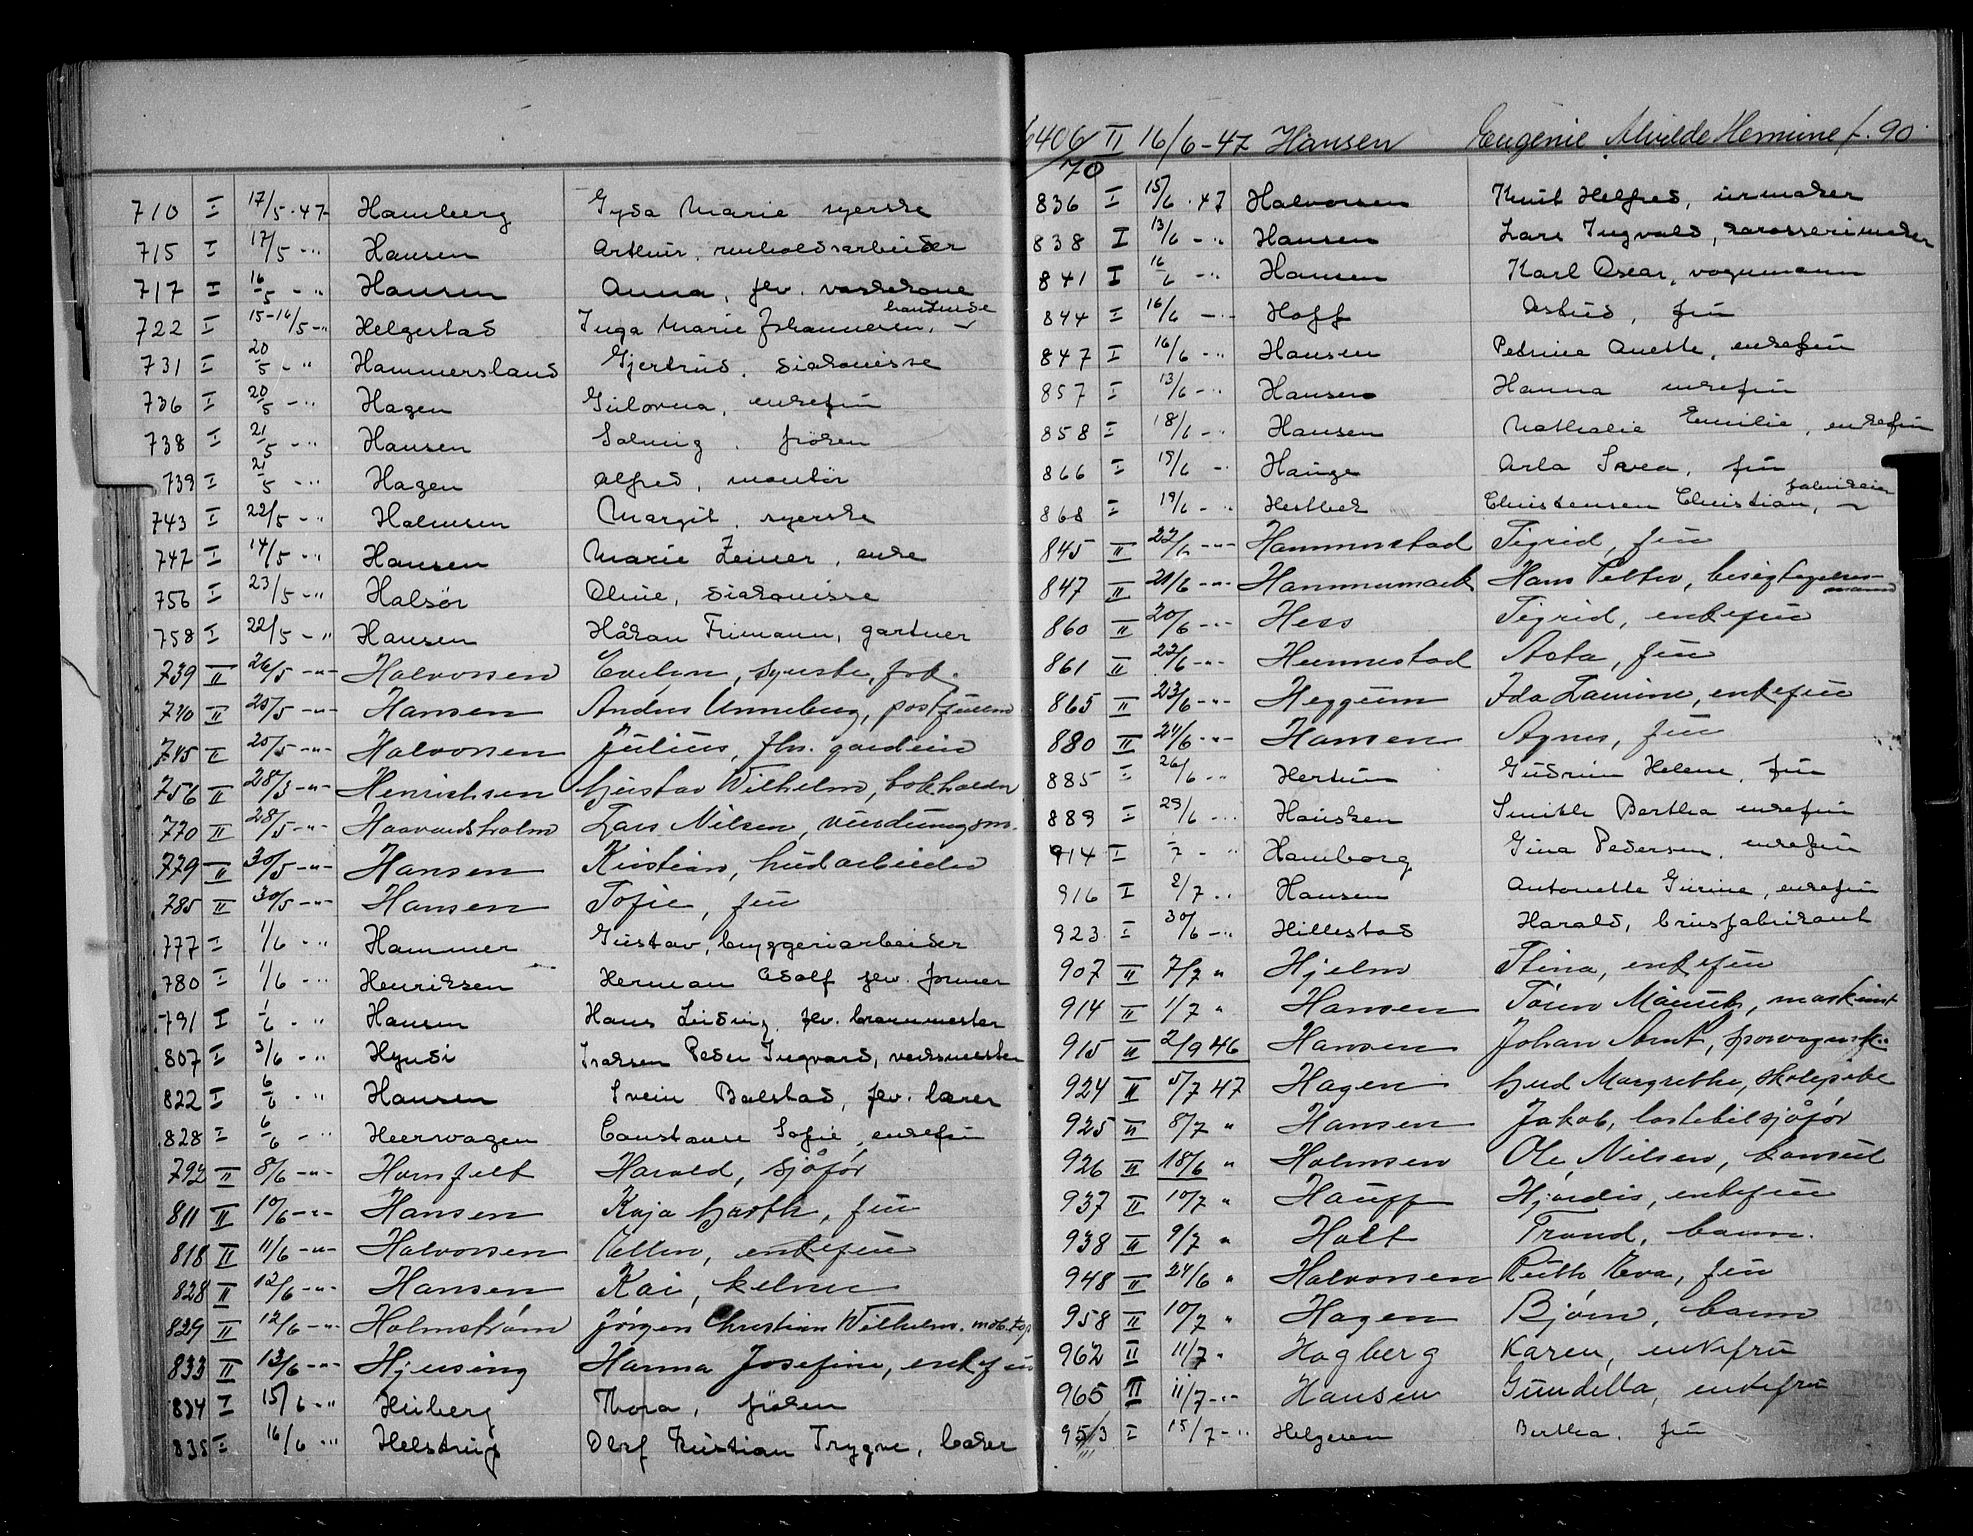 710 I 17/5-47 Hamberg Gyda Marie syerske
715 I 17/5 -" Hansen Arthur, renholdsarbeider
717 I 16/5 -" Hansen Anna, fhv. vaskekone
722 I 15-16/5 -" Helgestad Inga Marie Johannesen,
731 I 20/5 -" Hammersland Gjertrud, diakonisse
736 I 20/5 -" Hagen Gulovna, enkefru
738 I 21/5 -" Hansen Solveig, frøken
739 I 21/5 -" Hagen Alfred, montör
743 I 22/5 -" Halmsen Margit, syerske
747 I 14/5 -" Hansen Marie Zeiner, enke
756 I 23/5 -" Halsör Oline, diakonisse
758 I 22/5 -" Hansen Håkon Frimann, gartner
739 II 26/5 -"- Halvorsen Evelyn, syerske, frk.
740 II 25/5 -"- Hansen Anders Unneberg, postfullm
745 II 25/5 -"- Halvorsen Julius, fhv. gardein
756 II 28/3 -"- Henrichsen Gustav Wilhelm, bokholder
770 II 28/5 -"- Haavardsholm Lars Nilsen, vurderingsm.
779 II 30/5 -"- Hansen Kristian, hudarbeider
785 II 30/5 -"- Hansen Sofie, fru
777 I 1/6 -" Hammer Gustav, bryggeriarbeider
780 I 1/6 -" Henriksen Herman Adolf fhv. former
791 I 1/6 -" Hansen Hans Ludvig, fhv. brannmester
807 I 3/6 -" Hyndi Isaksen Peder Ingvard, verksmester
822 I 6/6 -" Hansen Svein Bolstad, fhv. lærer
828 I 6/6 -" Heerwagen Constance Sofie, enkefru
792 II 8/6 -"- Hornfelt Harald, sjåfør
811 II 10/6 -"- Hansen Kaja Groth, fru
818 II 11/6 -"- Halvorsen enkefru
828 II 12/6 -"- Hansen Kai, kelner
829 II 12/6 -"- Holmstrøm Jörgen Christian Wilhelm,
833 II 13/6 -"- Hjensing Hanna Josefine, enkefru
834 I 15/6 -" Heiberg Thora, frøken
835 I 16/6 -" Helstrup Olof Kristian Trygve, baker
6406/70 II 16/6-47 Hansen Eugenie Alvilde Hermine f. 90
836 I 15/6 -47 Halvorsen Knut Helfred, urmaker
838 I 13/6 -" Hansen Lars Ingvald, karosserimaker
841 I 16/6 -" Hansen Karl Oscar, vognmann
844 I 16/6 -" Hoff Astrid, fru
847 I 16/6 -" Hansen Petrine Anette, enkefru
857 I 13/6 -" Hansen Hanna enkefru
858 I 18/6 -" Hansen Nathalie Emilie, enkefru
866 I 19/6 -" Hauge Asta Svea, fru
868 I 19/6 -" Hestbek Christensen Christian, fabrikeier
845 II 22/6 -"- Hammerstad Sigrid, fru
847 II 21/6 -"- Hammernæck Hans Petter, besigtigelsesmann
860 II 20/6 -"- Hess Sigrid, enkefru
861 II 22/6 -"- Hennestad Asta, fru
865 II 23/6 -"- Heggum Ida Laurine, enkefru
880 II 24/6 -"- Hansen Agnes, fru
885 I 26/6 -" Hertum Gudrun Helene, fru
889 I 29/6 -" Hansken Smith Bertha enkefru
914 I /7 -" Hamborg Gina Pedersen, enkefru
916 I 2/7 -" Hansen Antonette Gurine, enkefru
923 I 30/6 -" Hillestad Harald, brusfabrikant
907 II 7/7 " Hjelm Stina, enkefru
914 II 1/7 " Hansen Sören Maurits, maskinist
915 II 2/9 46 Hansen Johan Arnt, sporvognsk.
924 II 5/7 47 Hagen Gud Margrethe, skolepike
925 II 8/7 " Hansen Jakob, lastebilsjåför
926 II 18/6 " Holmsen Ole Nilsen, konsul
937 II 10/7 " Hauff Hjördis, enkefru
938 II 9/7 " Holt Trond, barn.
948 II 24/6 " Halvorsen Ruth Eva, fru
958 II 10/7 " Hagen Bjørn, barn
962 II 11/7 " Hagberg Karen, enkefru
965 II 11/7 -"- Hansen Gundella, enkefru
953 I 15/7 -" Helgesen Bertha, fru